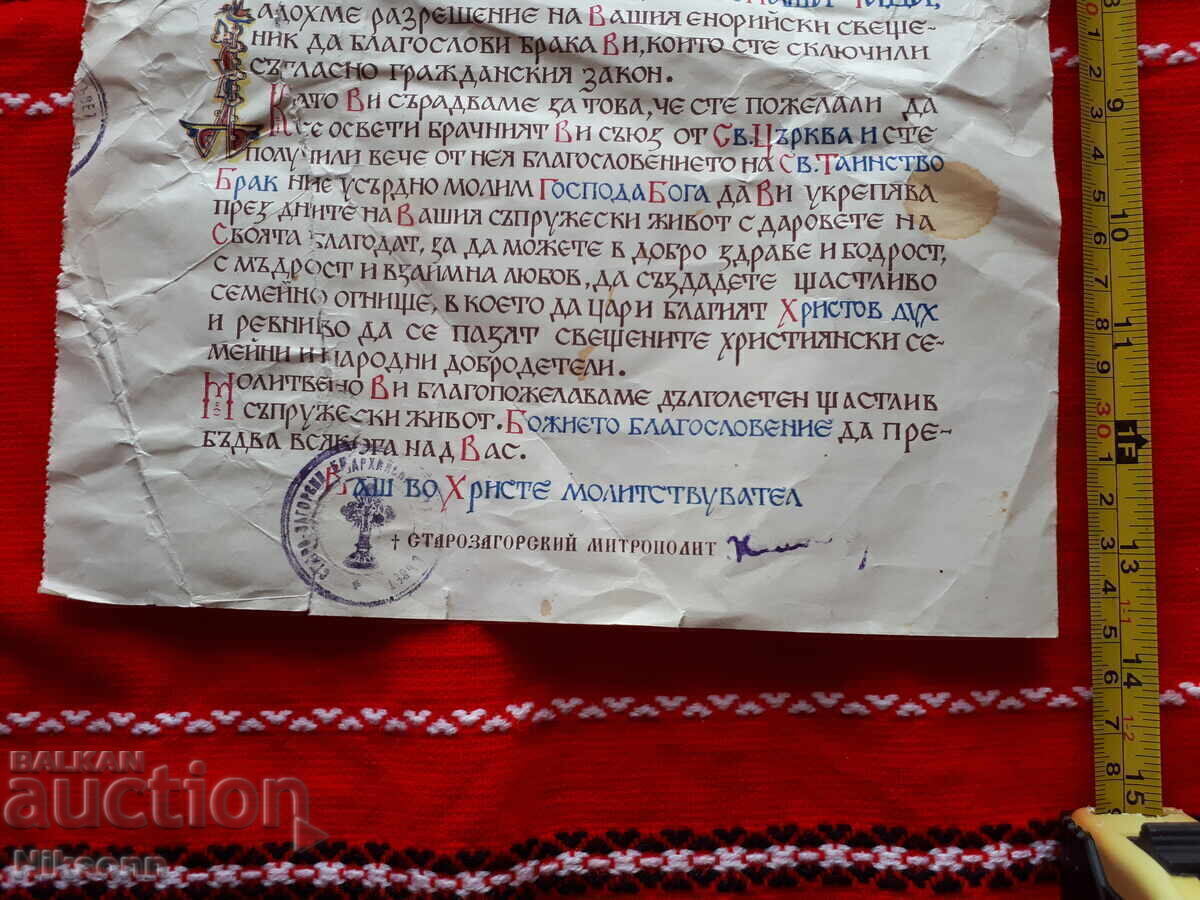 адохме разрешение на Вашия енорийски свеще-
ник да благослови брака Ви, които сте сключили
съгласно гражданския закон.
Като Ви сърадваме за това, че сте пожелали да
се освети брачният Ви съюз от Св. Църква и сте
получили вече от нея благословението на Св. Таинство
Брак ние усърдно молим Господа Бога да Ви укрепява
през дните на Вашия съпружески живот с даровете на
Своята благодат, за да можете в добро здраве и бодрост,
с мъдрост и взаимна любов, да създадете щастливо
семейно огнище, в което да цари благият Христов дух
и ревниво да се пазят свещените християнски се-
мейни и народни добродетели.
Молитвено Ви благопожелаваме дълголетен щастлив
съпружески живот. Божието благословение да пре-
бъдва всякога над Вас.
Ваш во Христе молитствувател
† Старозагорский митрополит
BALKAN
auction
Niksonn